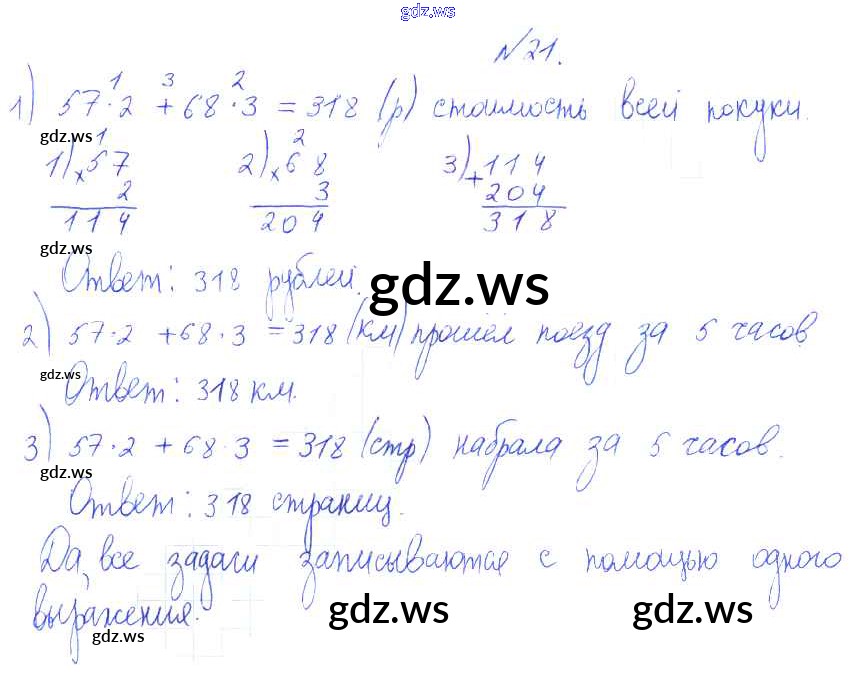 gdz.ws
№21.
1 3 2
1) 57·2 + 68·3 = 318 (р) стоимость всей покуки.
gdz.ws
1 2
1) × 57 2) × 68 3) + 114
2 3 204
114 204 318
gdz.ws
Ответ: 318 рублей.
gdz.ws
2) 57·2 + 68·3 = 318 (км) прошёл поезд за 5 часов
gdz.ws
Ответ: 318 км.
3) 57·2 + 68·3 = 318 (стр) набрала за 5 часов.
gdz.ws
Ответ: 318 страниц.
Да, все задачи записываются с помощью одного
выражения.
gdz.ws gdz.ws gdz.ws